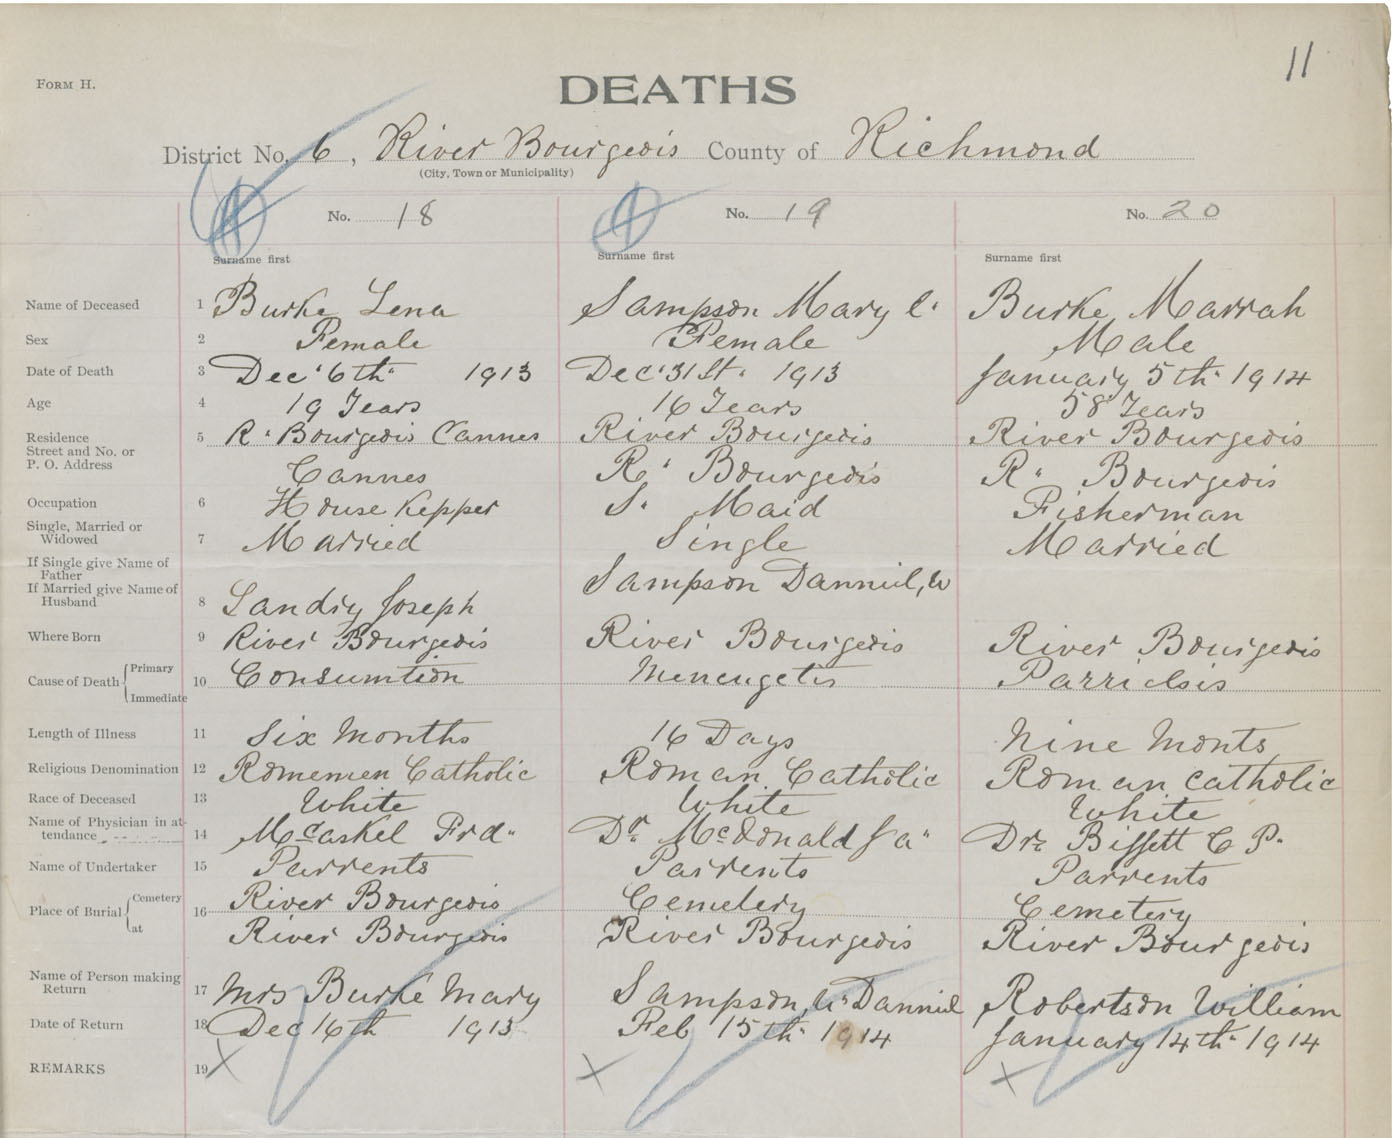 11
FORM H.
DEATHS
District No. 6, River Bourgeois County of Richmond
(City, Town or Municipality)
No. 18 No. 19 No. 20
Surname first Surname first Surname first
Name of Deceased 1 Burke Lena Sampson Mary C. Burke Marrah
Sex 2 Female Female Male
Date of Death 3 Dec. 6th 1913 Dec. 31st. 1913 January 5th. 1914
Age 4 19 Years 16 Years 58 Years
Residence 5 R. Bourgeois Cannes River Bourgeois River Bourgeois
Street and No. or
P. O. Address Cannes R. Bourgeois R. Bourgeois
Occupation 6 House Kepper S. Maid Fisherman
Single, Married or
Widowed 7 Married Single Married
If Single give Name of
Father Sampson Danniel, W
If Married give Name of
Husband 8 Landry Joseph
Where Born 9 River Bourgeois River Bourgeois River Bourgeois
Cause of Death { Primary
10 Consumtion Menengetis Parrielsis
Immediate
Length of Illness 11 Six Months 16 Days Nine Monts
Religious Denomination 12 Romemen Catholic Roman Catholic Roman catholic
Race of Deceased 13 White White White
Name of Physician in at-
tendance 14 McCaskel Frd. Dr. McDonald J a. Dr. Bissett C P.
Name of Undertaker 15 Parrents Parrents Parrents
Place of Burial { Cemetery 16 River Bourgeois Cemetery Cemetery
at River Bourgeois River Bourgeois River Bourgeois
Name of Person making
Return 17 Mrs Burke Mary Sampson, W. Danniel Robertson William
Date of Return 18 Dec 16th 1913 Feb 15th. 1914 January 14th. 1914
REMARKS 19 X X X